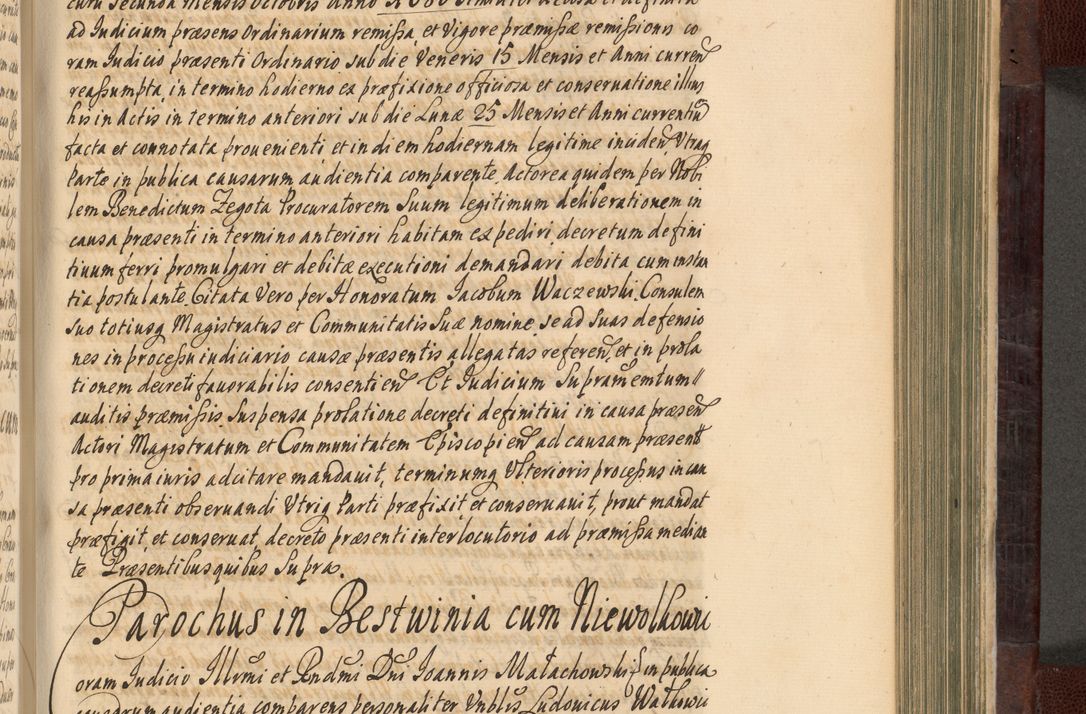 ad Iudicium præsens Ordinarium remissa, et Vigore præmissæ remissionis co
ram Iudicio præsenti Ordinario sub die Veneris 15 Mensis et Anni curren
reassumpta, in termino hodierno ex præfixione officiosa et conservatione illius
his in Actis in termino anteriori sub die Lunæ 25 Mensis et Anni currentiu
facta et connotata provenienti, et in diem hodiernam legitime inciden, Utraq
Parte in publica causarum audientia comparente. Actorea quidem per Nobi
lem Benedictum Zegota Procuratorem suum legitimum deliberationem in
causa præsenti in termino anteriori habitam expediri, decretum defini
tivum ferri promulgari et debitæ executioni demandari debita cum instan
tia postulante. Citata Vero per Honoratum Iacobum Waczewski Consulem
suo totiusq Magistratus et Communitatis suæ nomine, se ad suas defensio
nes in processu iudiciario causæ præsentis allegatas referen, et in prola
tionem decreti favorabilis consentien Et Iudicium supramemtum //
auditis præmissis, suspensa prolatione decreti definitivi in causa præsen
Actori Magistratum et Communitatem Episcopien ad causam præsent
pro prima iuris adcitare mandavit, terminumq Ulterioris processus in cau
sa præsenti observandi Utriq Parti præfixit, et conservavit, prout mandat
præfigit, et conservat, decreto præsenti interlocutorio ad præmissa median
te Præsentibus quibus Supra.
Parochus in Bestwinia cum Niewolkowi
oram Iudicio Illrmi et Rndmi Dni Ioannis Małachowski § in publica
causarum audientia comparens personaliter Vnblis Ludovicus Wałkowi